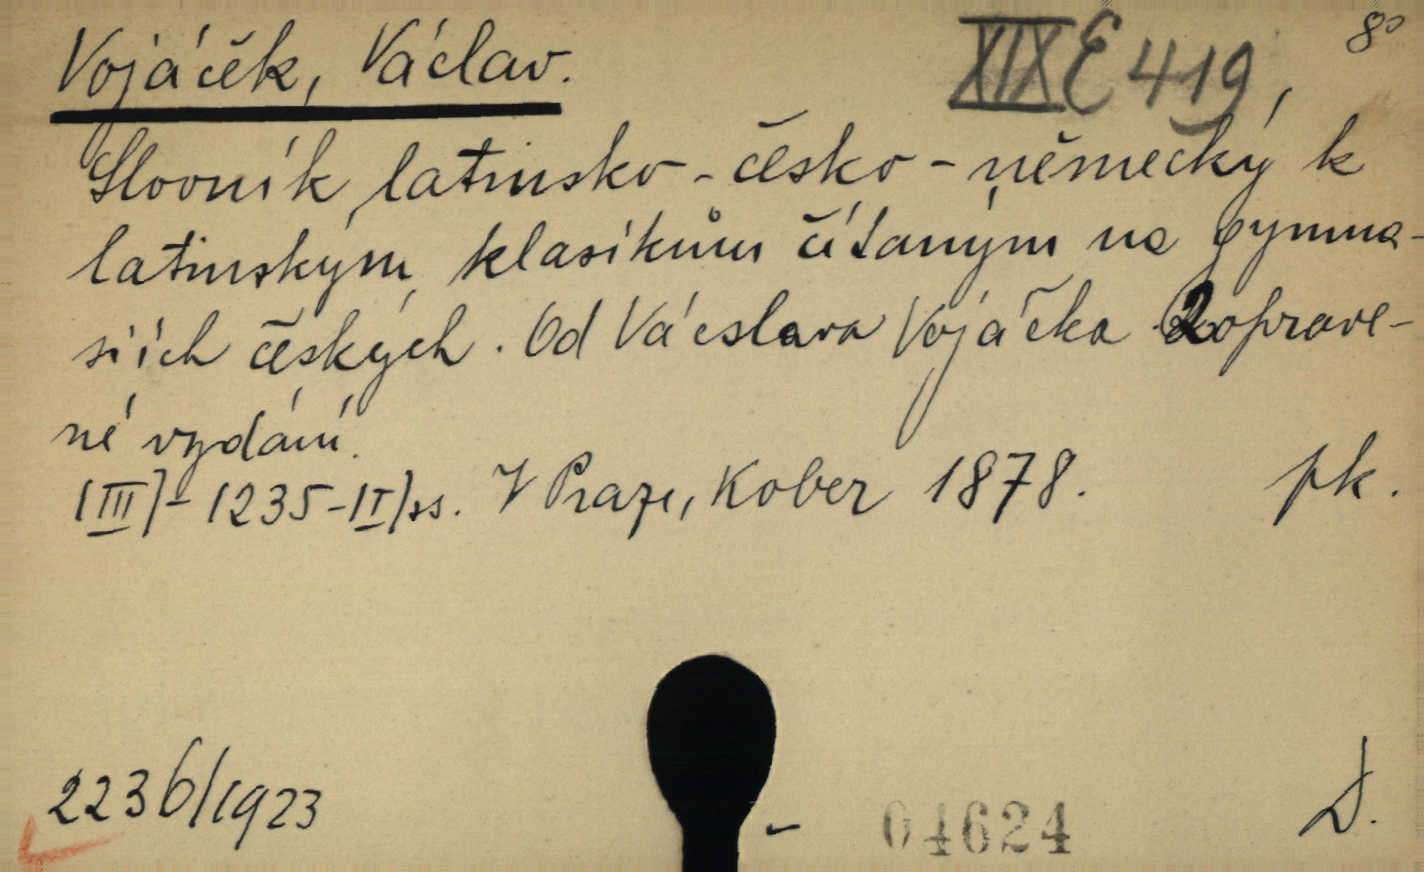 Vojáček, Václav.
XIX E 419,
8°
Slovník latinsko-česko-německý k
latinským klasikům čítaným na gymna-
siích českých. Od Vácslava Vojáčka. 2 oprave-
né vydání.
(III)-(235-II) ss. V Praze, Kober 1878. pk.
2236/1923
04624
D.